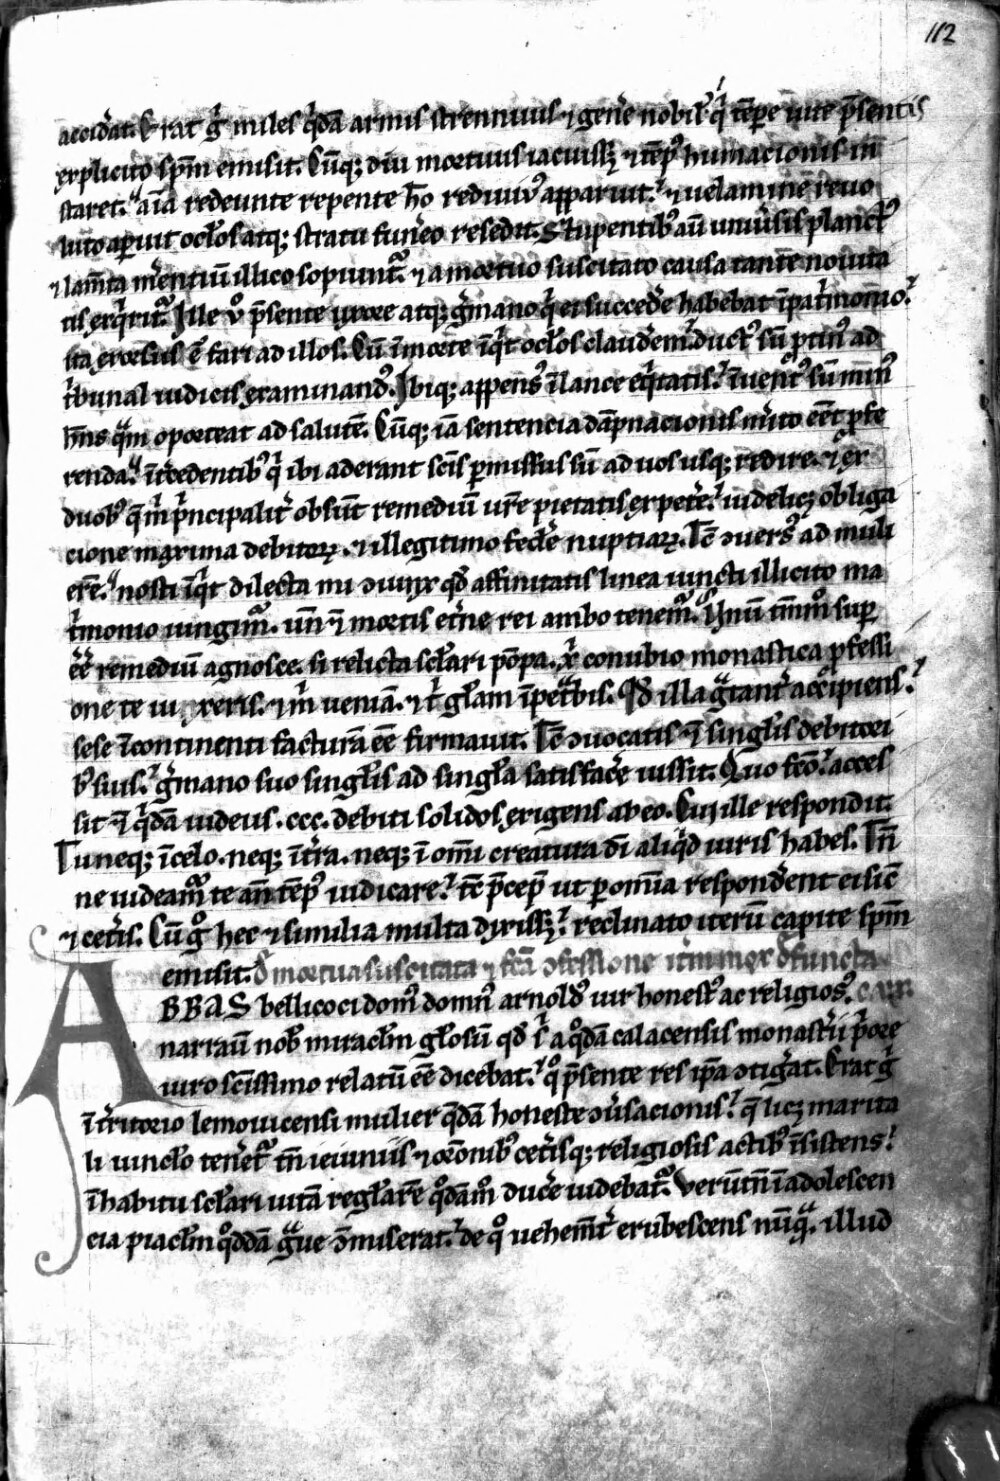 112
acciderat. Erat g̉ miles q̉dā armis strennuus ⁊ gen̉e nobil̉ q̉ tēpe uite p̄sentis
explicito sp̄m emisit. Cūq; diu mortuus iacuiss; ⁊ tēpꝰ humacionis in
staret. aīa redeunte repente h̄o rediuiuꝰ apparuit. ⁊ uelamine reuo
luto aperuit oc̄los atq; stratu fun̉eo resedit. Stupentibꝰ aū uniủsis planctꝰ
⁊ lam̄ta m̉entiū illico sopiunt̉. ⁊ a mortuo suscitato causa tante nouita
tis exq̉rit̉. Ille ů p̄sente uxore atq; g̉mano q̉ ei succedẻ habebat ī pat̉monio.
ita exorsus ē fari ad illos. Cū ī morte īq̉t oc̄los claudẻm. ductꝰ sū ptinꝰ ad
t̉bunal iudicis examinandꝰ. Ibiq; appensꝰ ī lance eq̉tatis. īuentꝰ sū minꝰ
h̄ns q̉m oporteat ad salutē. Cūq; iā sentencia dāpnacionis m̉ito eēt pfe
renda. īt̉cedentibꝰ q̉ ibi aderant sc̄is pmissus sū ad uos usq; redire. ⁊ ex
duobꝰ q̄ m̉ p̉ncipalit̉ obsūt remediū ur̄e pietatis expetẻ. uidelicꝫ obliga
cione maxima debitorꝝ. ⁊ illegitimo fedẻe nuptiarꝝ. Tc̄ ɔuersꝰ ad muli
erē. nosti īq̉t dilecta mi ɔiunx qd̄ affinitatis linea iuncti illicito ma
t̉monio iungim̉. un̄ ⁊ mortis et̉ne rei ambo tenem̉. Unū tm̄m̊ sup
ēē remediū agnosce. si relicta sc̄lari pōpa. ⁊ conubio monastica pfessi
one te iunxeris. ⁊ m̉ ueniā. ⁊ t̉ gl̄am īpet̉bis. Qd̄ illa g̉tant̉ accipiens.
sese īcontinenti facturā eē firmauit. Tc̄ ɔuocatis ⁊ singl̄is debitori
bꝰ suis. g̉mano suo singl̄is ad singl̄a satisfacẻ iussit. Quo fc̄o. acces
sit ⁊ q̉dā iudeus .ccc. debiti solidos exigens ab eo. Cui ille respondit.
Tu neq; ī celo. neq; ī t̉ra. neq; ī om̄i creatura dī aliq̉d iuris habes. Tn̄
ne uideam̉ te an̄ tēpꝰ iudicare. tc̄ p̄cep̄ ut p om̄ia respondẻnt ei sic̄
⁊ cet̉is. Cū g̊ hec ⁊ similia multa dixiss;. reclinato iterū capite sp̄m
emisit. d̉ mortua suscitata ⁊ fc̄a ɔfessione it̉um mox d̉functa
ABBAS bellicoci domꝰ domnꝰ arnoldꝰ uir honestꝰ ac religiosꝰ.
narrau̅ nob̄ mirac̄lm gl̄osū qd̄ s̉ a q̊dā calacensis monast̉ii p̉ore
uiro sc̄issimo relatū eē dicebat. q̊ p̄sente res ip̄a ɔtig̉at. Erat g̉
ī t̉ritorio lemouicensi mulier q̄dā honeste ɔủsacionis. q̄ licꝫ marita
li uinc̄lo tenẻt̉ tn̄ ieiuniis ⁊ or̄onibꝰ cet̉isq; religiosis actibꝰ īsistens.
ī habitu sc̄lari uitā regl̄arē q̊dam̊ ducẻ uidebat̉. Verūtn̄ ī adolescen
cia piac̄lm q̊ddā g̉ue ɔmiserat. de q̊ uehem̄t̉ erubescens nūq̉ illud